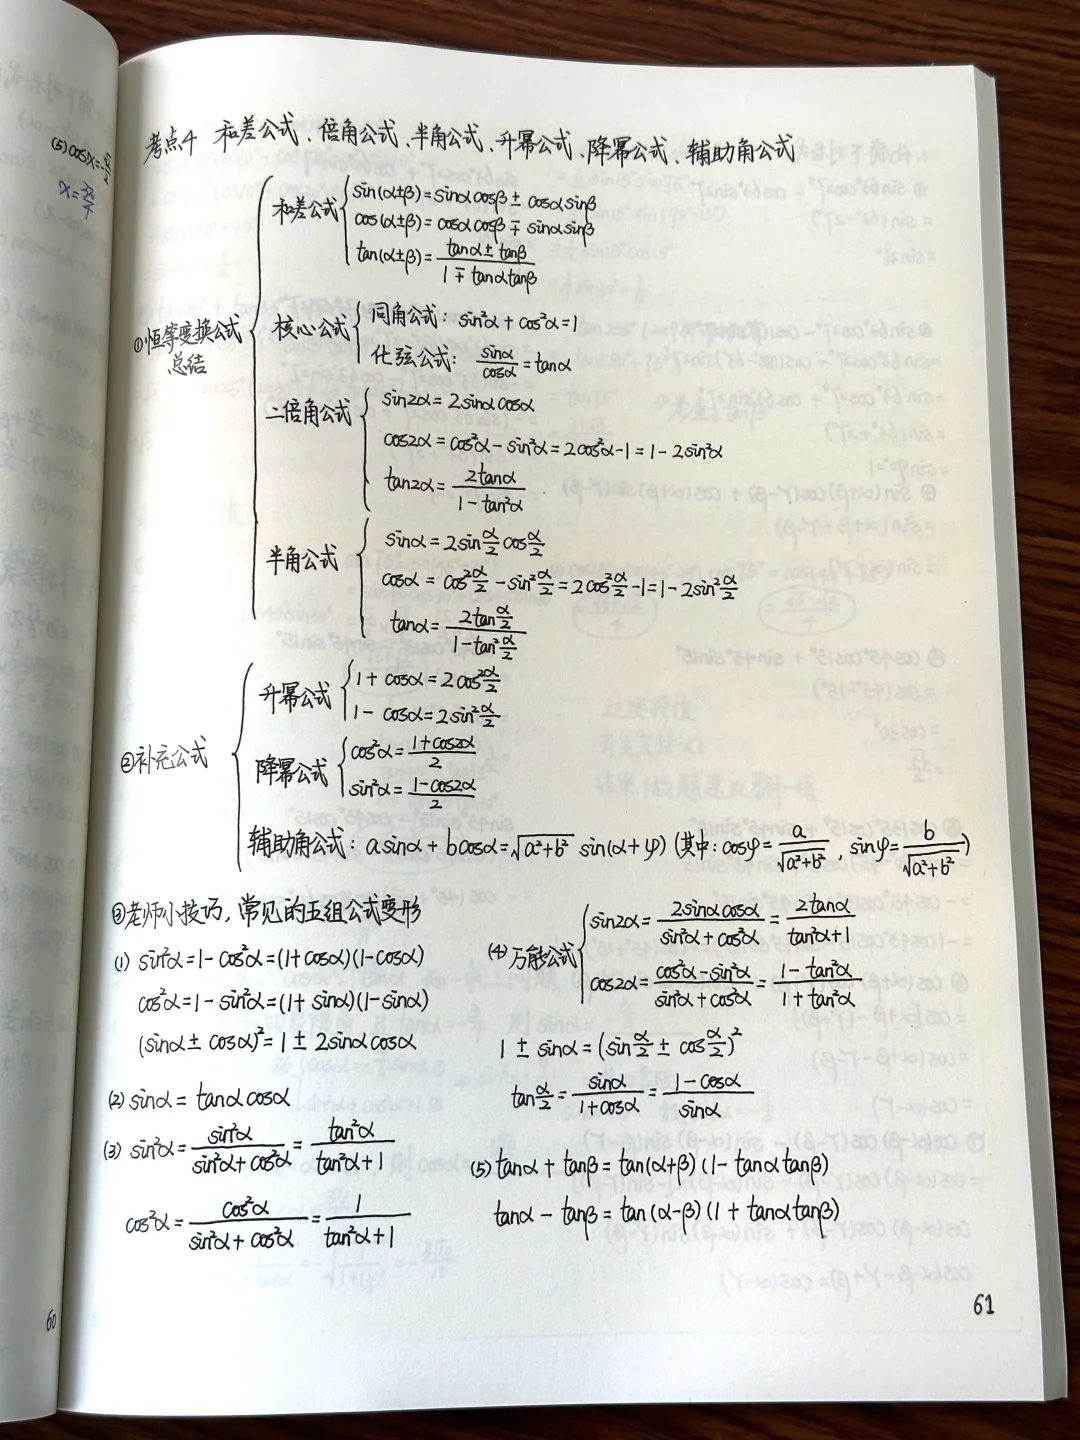 (5) cosx=-√2/2
x=3π/4
考点4 和差公式、倍角公式、半角公式、升幂公式、降幂公式、辅助角公式
①恒等变换公式
总结
和差公式
sin(α±β)=sinαcosβ±cosαsinβ
cos(α±β)=cosαcosβ∓sinαsinβ
tan(α±β)=(tanα±tanβ)/(1∓tanαtanβ)
核心公式
同角公式：sin²α+cos²α=1
化弦公式：sinα/cosα=tanα
二倍角公式
sin2α=2sinαcosα
cos2α=cos²α-sin²α=2cos²α-1=1-2sin²α
tan2α=2tanα/(1-tan²α)
半角公式
sinα=2sin(α/2)cos(α/2)
cosα=cos²(α/2)-sin²(α/2)=2cos²(α/2)-1=1-2sin²(α/2)
tanα=2tan(α/2)/(1-tan²(α/2))
②补充公式
升幂公式
1+cosα=2cos²(α/2)
1-cosα=2sin²(α/2)
降幂公式
cos²α=(1+cos2α)/2
sin²α=(1-cos2α)/2
辅助角公式：asinα+bcosα=√(a²+b²) sin(α+φ) (其中：cosφ=a/√(a²+b²)，sinφ=b/√(a²+b²))
③老师小技巧，常见的五组公式变形
(1) sin²α=1-cos²α=(1+cosα)(1-cosα)
cos²α=1-sin²α=(1+sinα)(1-sinα)
(sinα±cosα)²=1±2sinαcosα
(2) sinα=tanαcosα
(3) sin²α=sin²α/(sin²α+cos²α)=tan²α/(tan²α+1)
cos²α=cos²α/(sin²α+cos²α)=1/(tan²α+1)
(4) 万能公式
sin2α=2sinαcosα/(sin²α+cos²α)=2tanα/(tan²α+1)
cos2α=(cos²α-sin²α)/(sin²α+cos²α)=(1-tan²α)/(1+tan²α)
1±sinα=(sin(α/2)±cos(α/2))²
tan(α/2)=sinα/(1+cosα)=(1-cosα)/sinα
(5) tanα+tanβ=tan(α+β)(1-tanαtanβ)
tanα-tanβ=tan(α-β)(1+tanαtanβ)
60
61